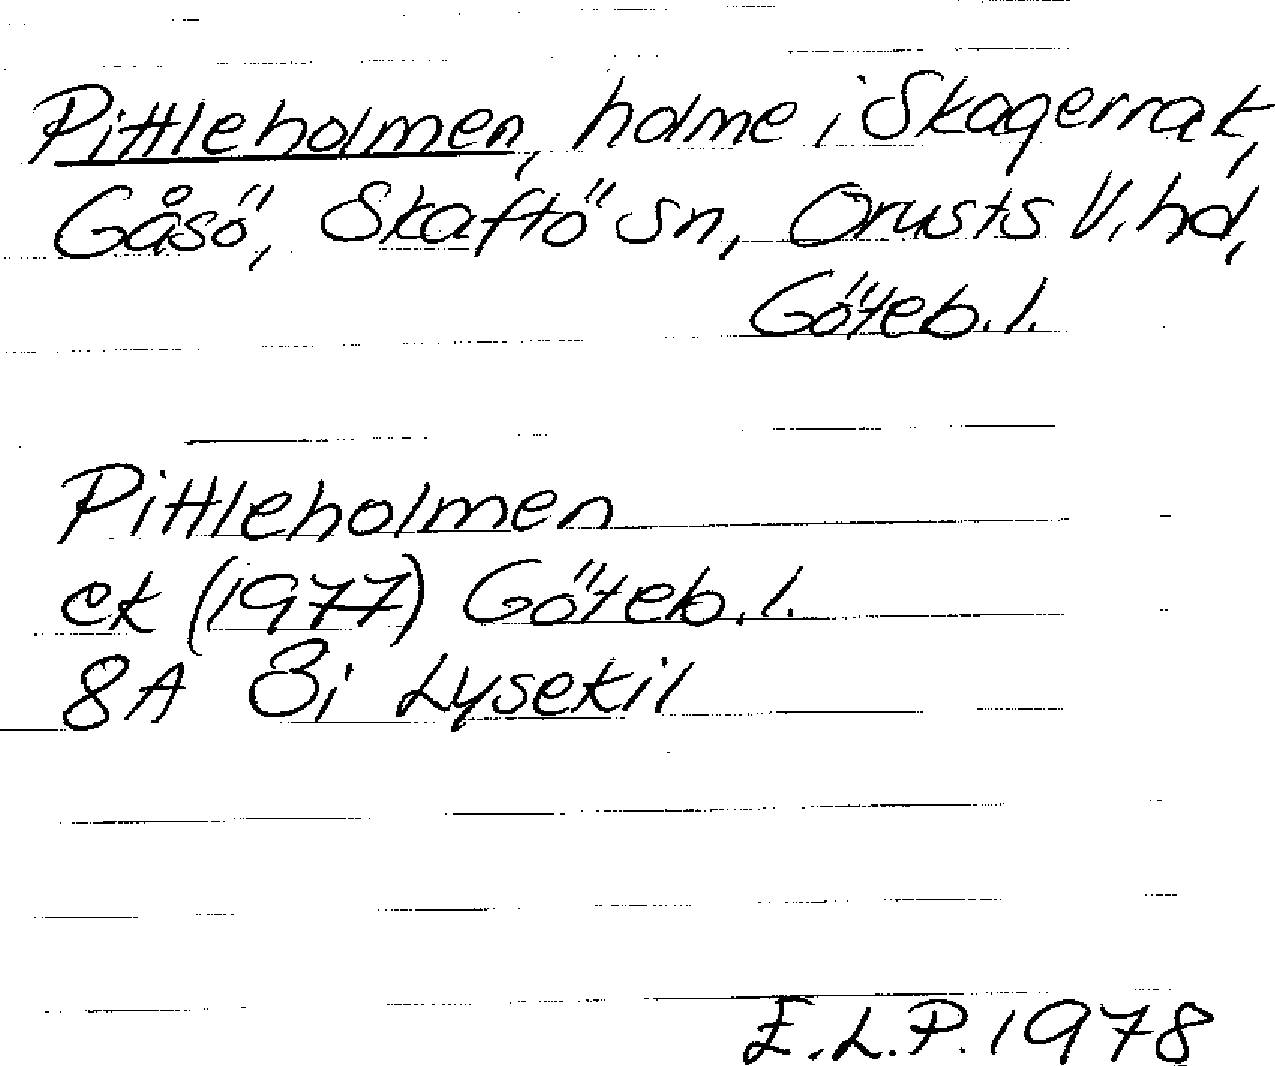 Pittleholmen, holme i Skagerrak,
Gåsö, Skaftö sn, Orusts V. hd,
Göteb. l.
Pittleholmen
ek (1977) Göteb. l.
8A 3i Lysekil
E.L.P. 1978